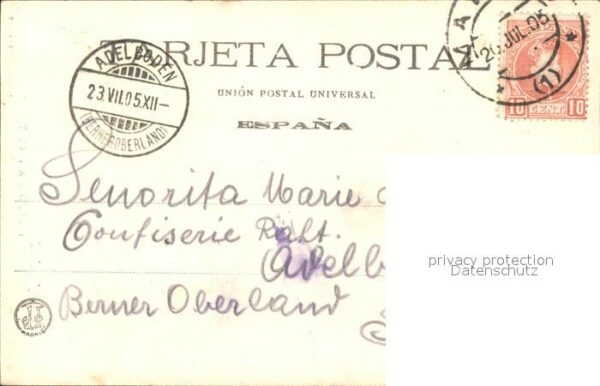 TARJETA POSTAL
UNIÓN POSTAL UNIVERSAL
ESPAÑA
ADELBODEN
23.VII.05.XII-
(BERNEROBERLAND)
MAD
20 JUL 05
(1)
10 CENT 10
Senorita Marie
Confiserie
Adelb
Berner Oberland
MADRID
privacy protection
Datenschutz